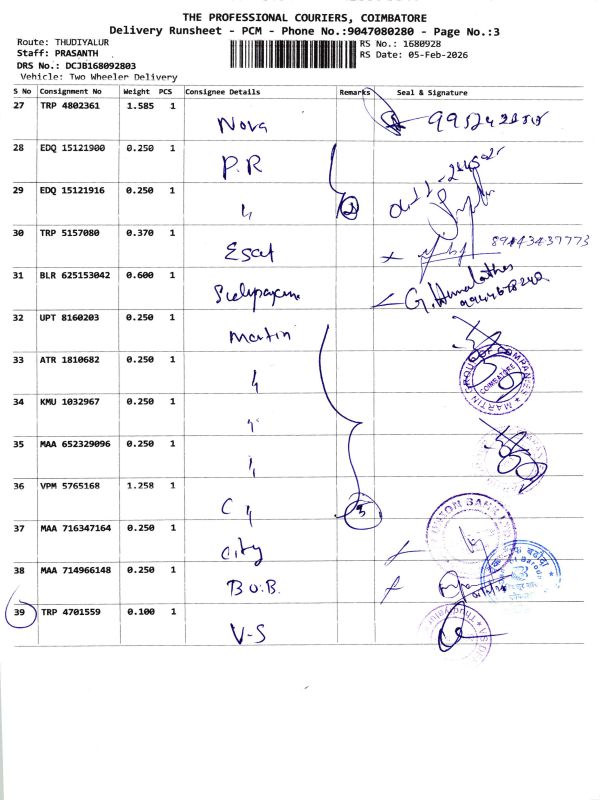 THE PROFESSIONAL COURIERS, COIMBATORE
Delivery Runsheet - PCM - Phone No.:9047080280 - Page No.:3
Route: THUDIYALUR
Staff: PRASANTH
DRS No.: DCJB168092803
Vehicle: Two Wheeler Delivery
RS No.: 1680928
RS Date: 05-Feb-2026
S No Consignment No Weight PCS Consignee Details Remarks Seal & Signature
27 TRP 4802361 1.585 1 Nova
28 EDQ 15121900 0.250 1 P.R
29 EDQ 15121916 0.250 1 " 2
30 TRP 5157080 0.370 1 Esaf 89443437773
31 BLR 625153042 0.600 1 G. Hemalatha
32 UPT 8160203 0.250 1 Martin
33 ATR 1810682 0.250 1 " MARTIN GROUP OF COMPANIES COIMBATORE
34 KMU 1032967 0.250 1 "
35 MAA 652329096 0.250 1 "
36 VPM 5765168 1.258 1 C " 5
37 MAA 716347164 0.250 1 City UNION BANK
38 MAA 714966148 0.250 1 B.O.B.
39 TRP 4701559 0.100 1 V-S Thudiyalur